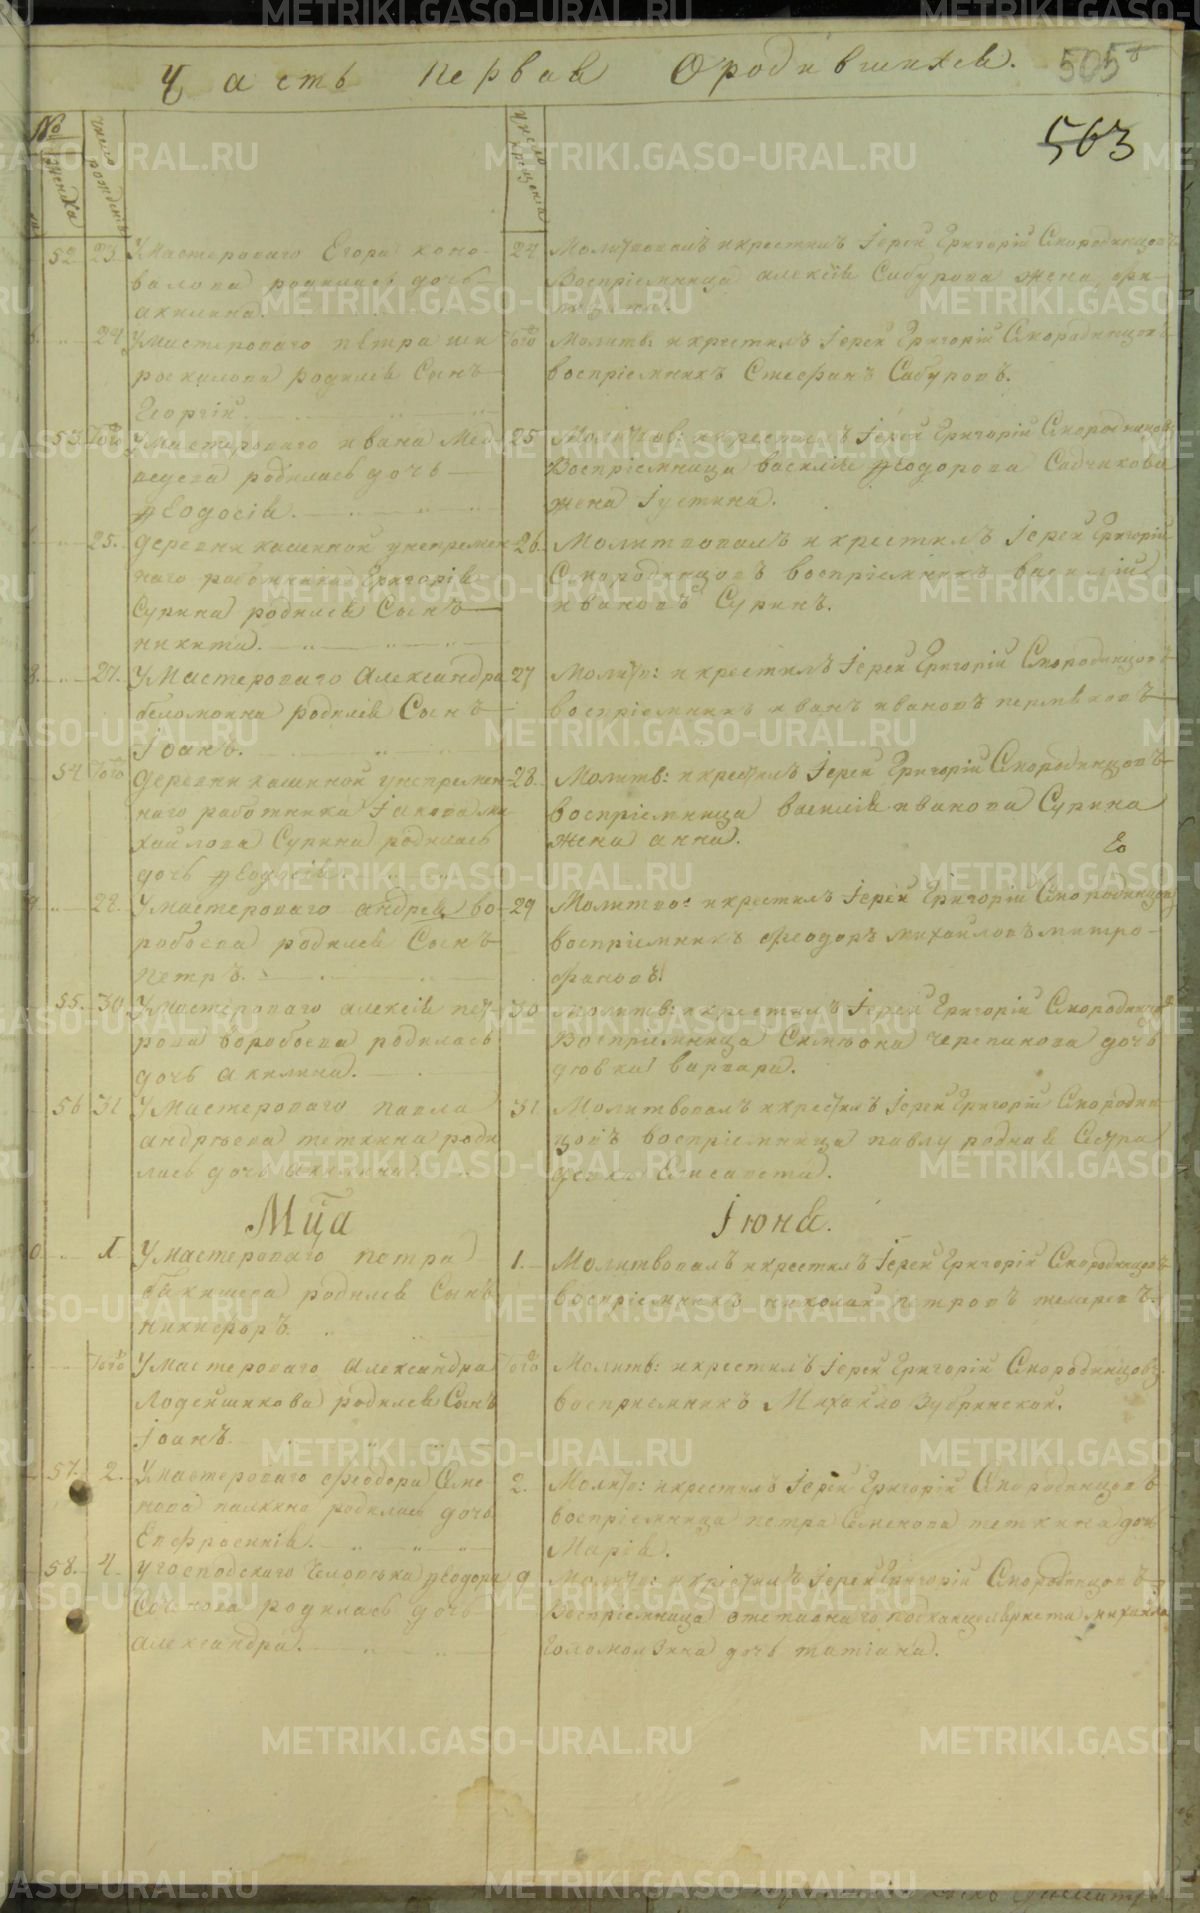 Часть первая О родившихся.
5058
563
№
женска
число рождения
число крещения
52 23 У Мастероваго Егора коно-
валова родилась дочь
акилина.
24 Молитвовалъ и крестилъ Іерей Григорій Смородинцовъ
Воспріемница алексія Сабурова жена
24 У Мастероваго петра
родился Сынъ
Георгій.
Того Молитв: и крестилъ Іерей Григорій Смородинцовъ
воспріемникъ Стефанъ Сабуровъ.
53 Того У Мастероваго ивана Мед-
ведева родилась дочь
Ѳеодосія.
25 Молитвов: и крестилъ Іерей Григорій Смородинцов
Воспріемница василія Ѳеодорова Садчикова
жена Іустина.
25. деревни кашиной у непремен-
наго работника Григорія
Сурина родился Сынъ
никита.
26 Молитвовалъ и крестилъ Іерей Григорій
Смородинцовъ воспріемникъ василій
ивановъ Суринъ.
8. 27. У Мастероваго Александра
беломоина родился Сынъ
Іоанъ.
27 Молитв: и крестилъ Іерей Григорій Смородинцовъ
воспріемникъ иванъ ивановъ пермяковъ
54 Того деревни кашиной у непремен-
наго работника Іакова ми-
хайлова Сурина родилась
дочь Ѳеодосія.
28 Молитв: и крестилъ Іерей Григорій Смородинцовъ
воспріемница василія иванова Сурина
жена анна.
Ео
9 28. У мастероваго андрея во-
робьева родился Сынъ
петръ.
29 Молитво: и крестилъ Іерей Григорій Смородинцов
воспріемникъ феодоръ михайловъ митро-
фановъ.
55. 30 У мастероваго алексія пет-
рова воробьева родилась
дочь акилина.
30 молитв: и крестилъ Іерей Григорій Смородинцов
Воспріемница Симеона черепанова дочь
девка варвара.
56 31 У Мастероваго павла
андреева теткина роди
лась дочь акилина.
31 Молитвовалъ и крестилъ Іерей Григорій Смородин-
цовъ воспріемница павлу родная Сестра
девка Елисавета.
Мца Іюня.
0 1 У мастероваго петра
родился Сынъ
никифоръ.
1. Молитвовалъ и крестилъ Іерей Григорій Смородинцовъ
воспріемникъ николай петровъ
Того У Мастероваго Александра
Лодейщикова родился Сынъ
Іоанъ.
Того Молитв: и крестилъ Іерей Григорій Смородинцовъ
воспріемникъ Михайло Зубринской.
57. 2. У мастероваго феодора Семе
нова палкина родилась дочь
Евфросинія.
2. Молитв: и крестилъ Іерей Григорій Смородинцовъ
воспріемница петра Семенова теткина дочь
Марія.
58. 4. У господскаго Человека Ѳеодора
родилась дочь
александра.
9 Молитв: и крестилъ Іерей Григорій Смородинцовъ
Воспріемница отставнаго подканцеляриста михайла
Голомолзина дочь татіана.
METRIKI.GASO-URAL.RU